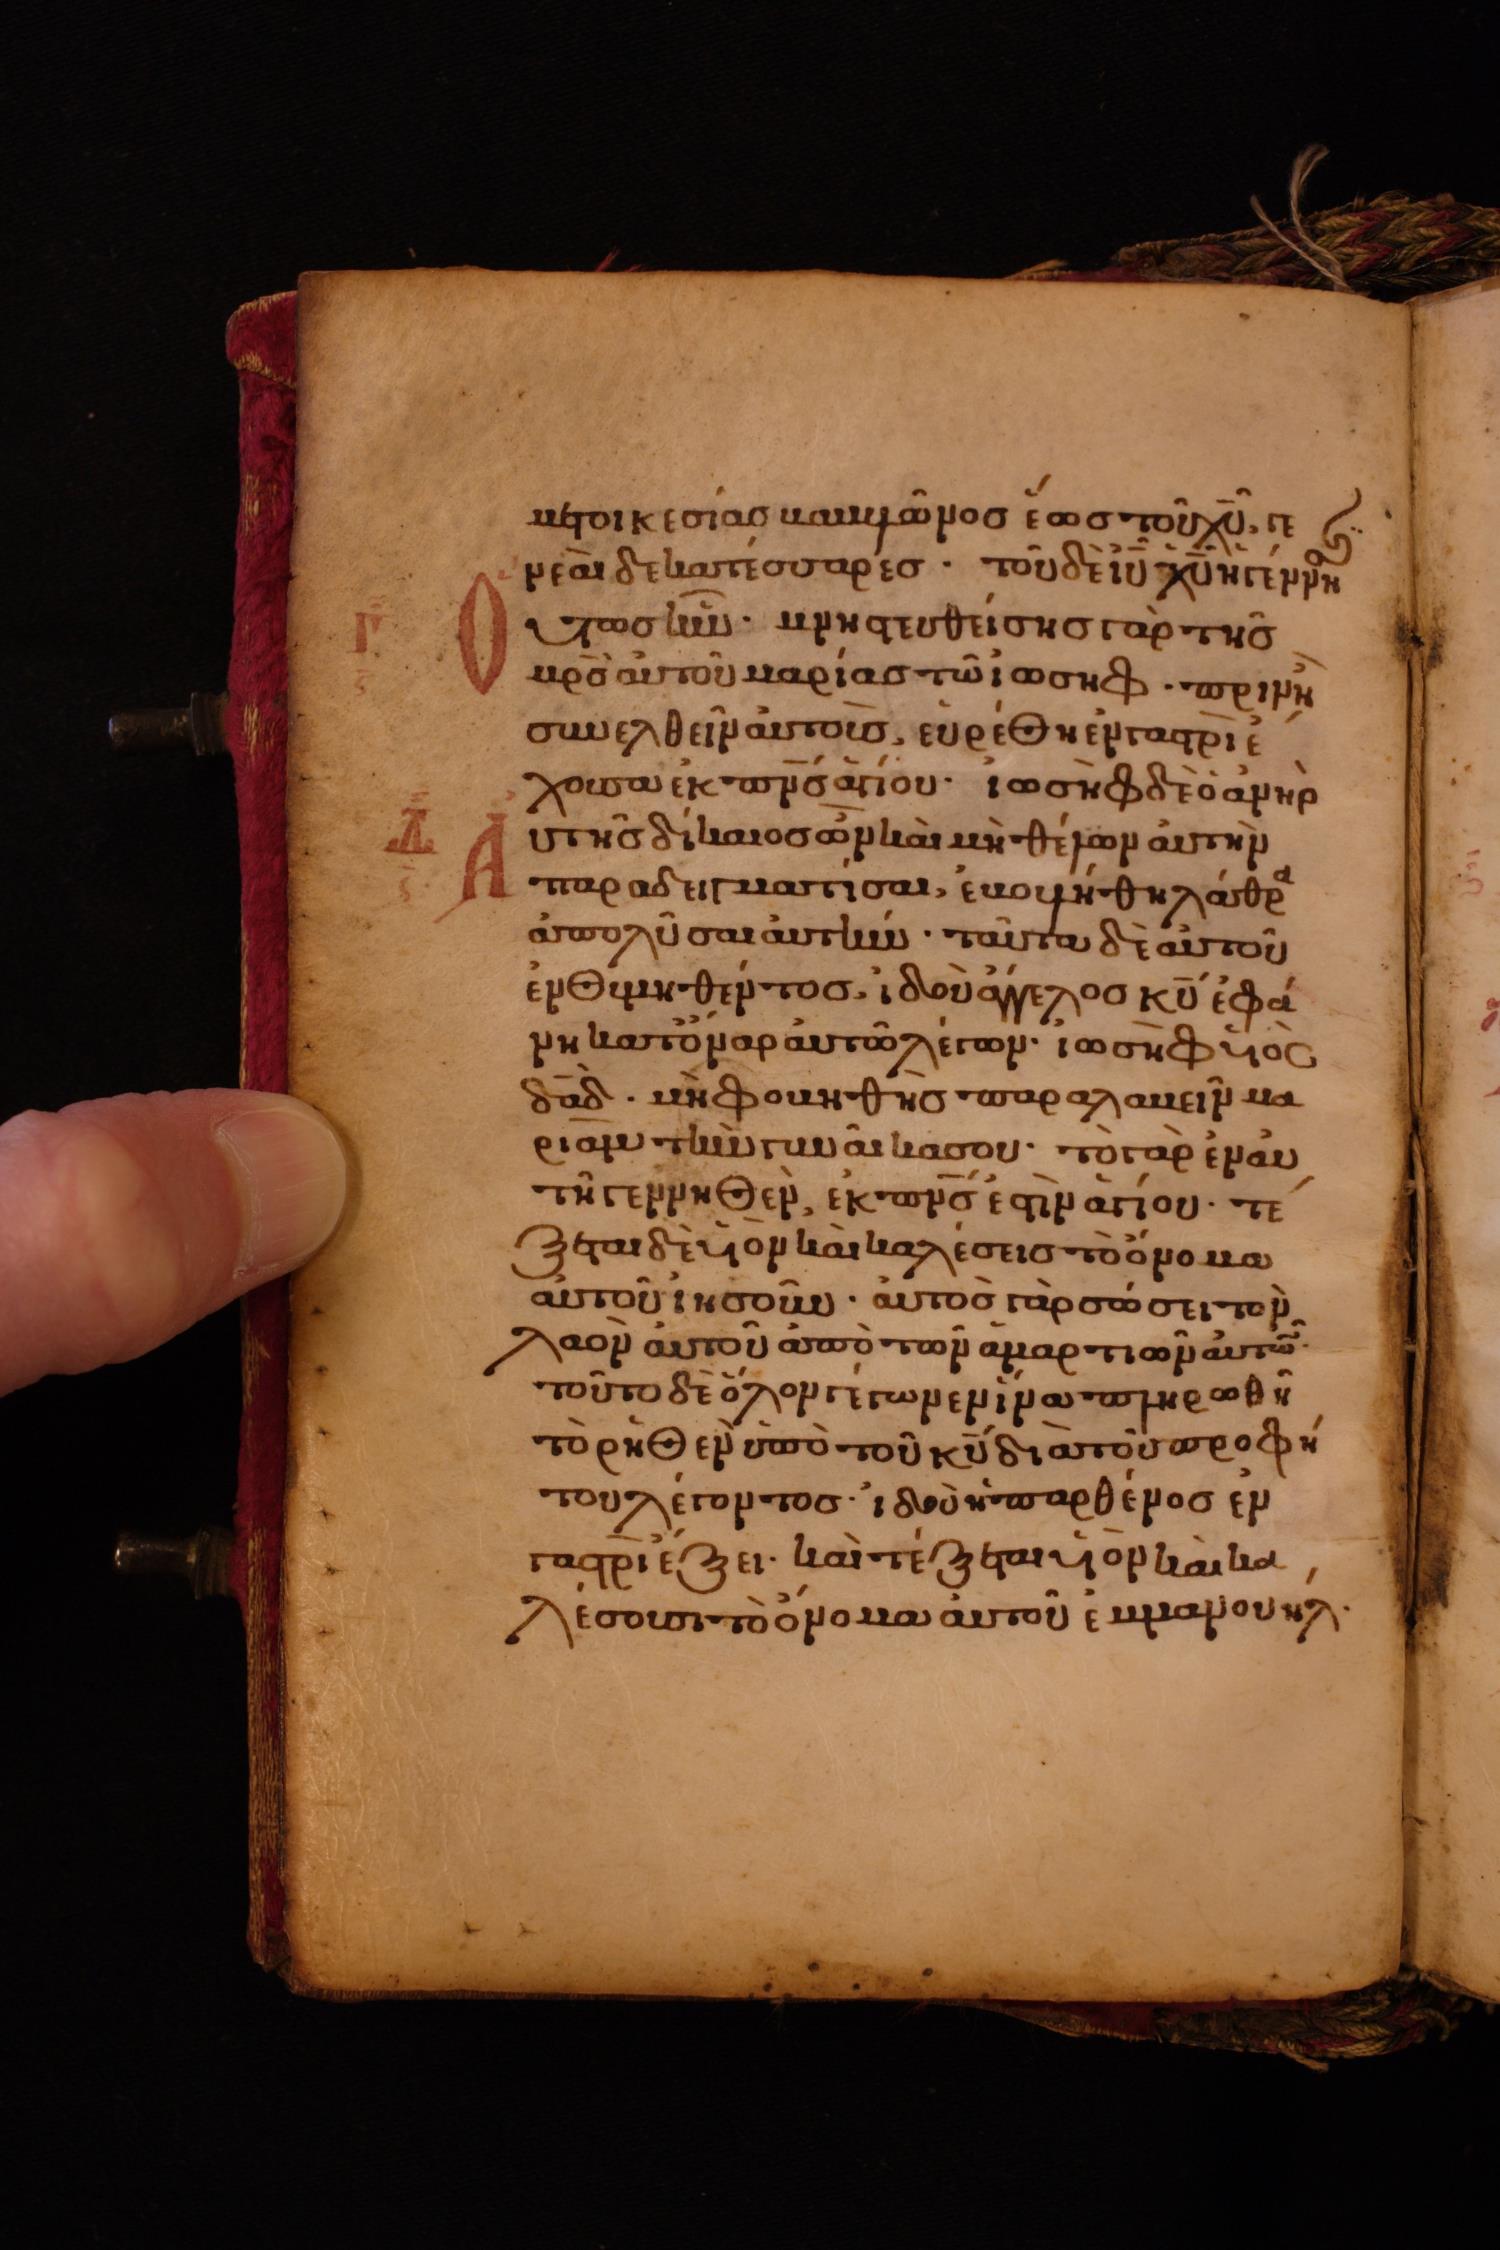 μετοικεσίας βαβυλῶνος ἕως τοῦ χυ̅, γε
νεαὶ δεκατέσσαρες · τοῦ δὲ ιυ̅ χυ̅ ἡ γέννη
Ο οὕτως ἦν · μνηστευθείσης γὰρ τῆς
μρ̅ς αὐτοῦ μαρίας τῶ ἰωσήφ · πρινὴ
συνελθεῖν αὐτοὺς, εὑρέθη ἐν γαστρὶ ἔ
χουσα ἐκ πν̅ς ἁγίου · ἰωσὴφ δὲ ὁ ἀνὴρ
Α αὐτῆς δίκαιος ὢν καὶ μὴ θέλων αὐτὴν
παραδειγματίσαι, ἐβουλήθη λάθρα
ἀπολῦσαι αὐτήν · ταῦτα δὲ αὐτοῦ
ἐνθυμηθέντος, ἰδοὺ ἄγγελος κυ̅ ἐφά
νη κατ᾽ ὄναρ αὐτῶ λέγων · ἰωσὴφ υἱὸς
δα̅δ · μὴ φοβηθῆς παραλαβεῖν μα
ριὰμ τὴν γυναῖκα σου · τὸ γὰρ ἐν αὐ
τῆ γεννηθὲν, ἐκ πν̅ς ἐστὶν ἁγίου · τέ
ξεται δὲ υἱὸν καὶ καλέσεις τὸ ὄνομα
αὐτοῦ ἰησοῦν · αὐτὸς γὰρ σώσει τὸν
λαὸν αὐτοῦ ἀπὸ τῶν ἁμαρτιῶν αὐτῶν ·
τοῦτο δὲ ὅλον γέγονεν ἵνα πληρωθῆ
τὸ ῥηθὲν ὑπὸ τοῦ κυ̅ διὰ τοῦ προφή
του λέγοντος · ἰδοὺ ἡ παρθένος ἐν
γαστρὶ ἕξει · καὶ τέξεται υἱὸν καὶ κα
λέσουσι τὸ ὄνομα αὐτοῦ ἐμμανουήλ ·